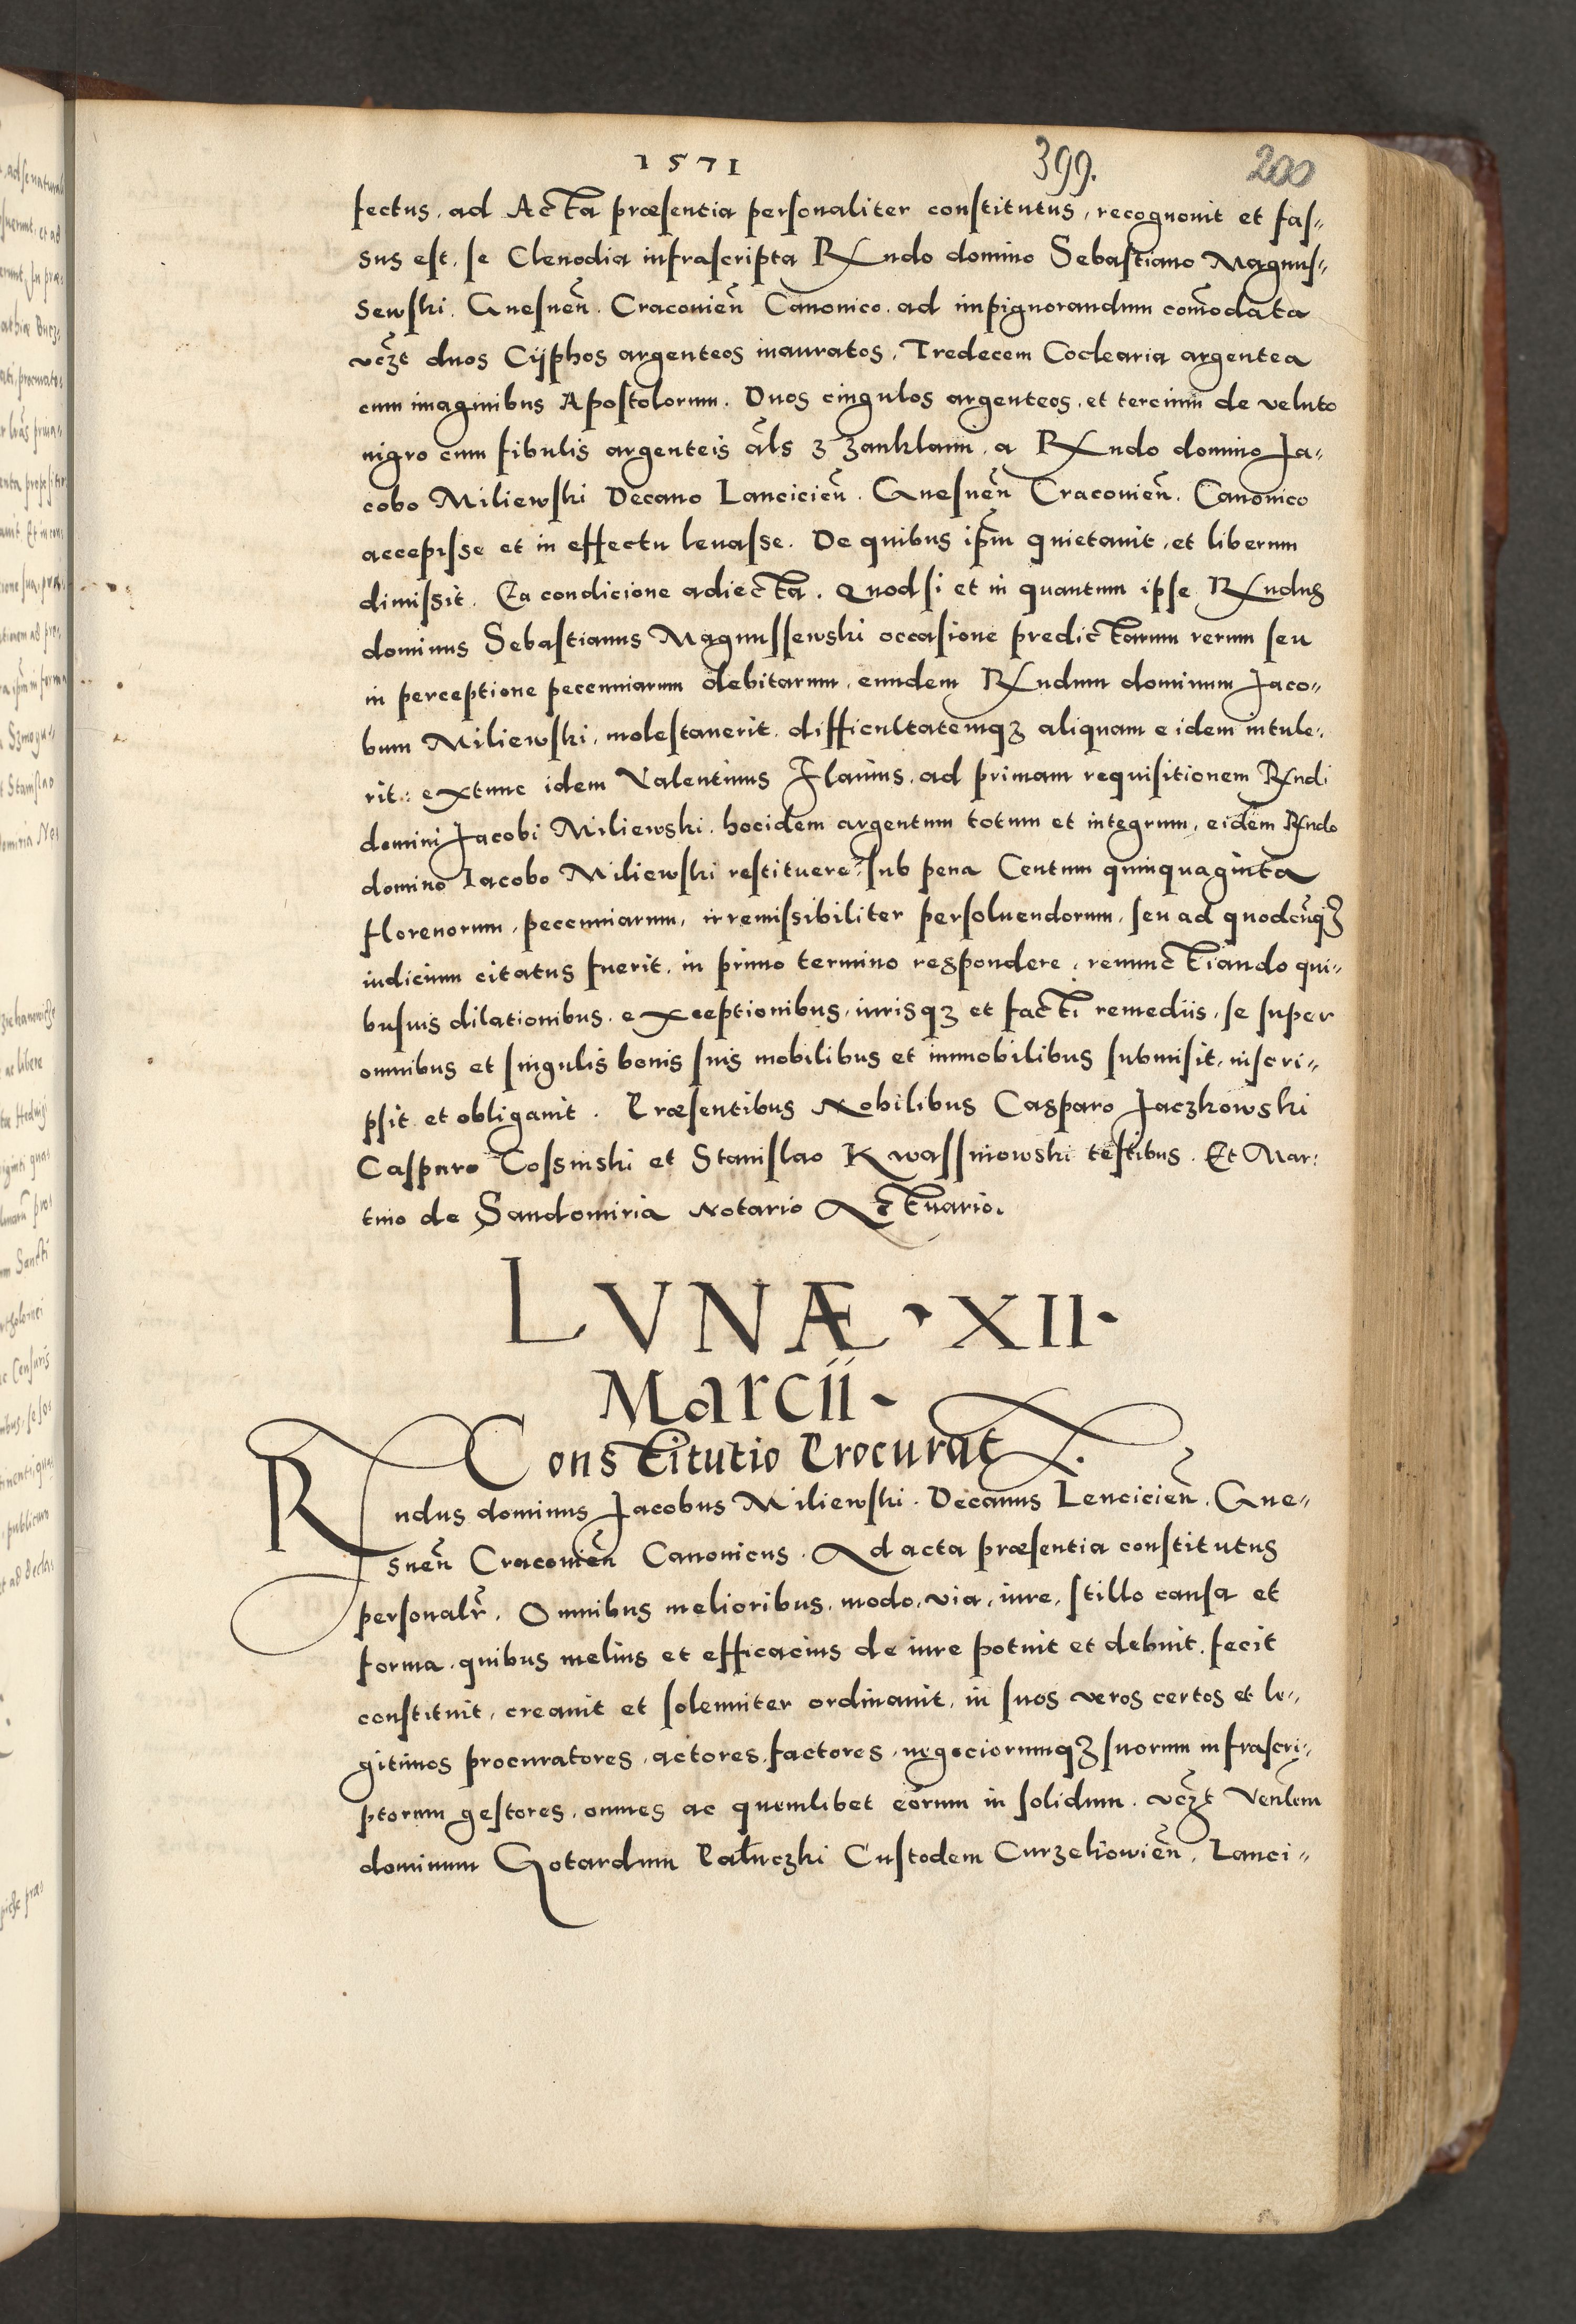 1571 399. 200
fectus, ad Acta præsentia personaliter constitutus, recognouit et fas-
sus est, se Clenodia infrascripta Rndo domino Sebastiano Magnus-
sewski. Gnesnen̄. Cracouien̄ Canonico. ad impignorandum com̄odata
vcꝫt duos Cÿphos argenteos inauratos, Tredecem Coclearia argentea
cum imaginibus Apostolorum. Duos cingulos argenteos, et tercium de veluto
nigro cum fibulis argenteis āls z zanklami, a Rndo domino Ja-
cobo Miliewski Decano Lancicien̄. Gnesnen̄ Cracouien̄. Canonico
accepisse et in effectu leuasse. De quibus ip̄m quietauit, et liberum
dimissit. Ea condicione adiecta. Quod si et in quantum ipse Rndus
dominus Sebastianus Magnussewski occasione predictarum rerum seu
in perceptione pecuniarum debitarum, eundem Rndum dominum Jaco-
bum Miliewski, molestauerit, difficultatemqꝫ aliquam eidem intule-
rit: extunc idem Valentinus Flauius, ad primam requisitionem Rndi
domini Jacobi Miliewski, hocidem argentum totum et integrum, eidem Rndo
domino Jacobo Miliewski restituere: sub pena Centum quinquaginta
florenorum, pecuniarum, irremissibiliter persoluendorum, seu ad quodcūqꝫ
iudicium citatus fuerit, in primo termino respondere, renunctiando qui-
busuis dilationibus, exceptionibus, iurisqꝫ et facti remediis, se super
omnibus et singulis bonis suis mobilibus et immobilibus submisit, inscri-
psit et obligauit. Præsentibus Nobilibus Casparo Jaczkowski
Casparo Cossinski et Stanislao Kwassniowski testibus. Et Mar-
tino de Sandomiria Notario Actuario.
LVNÆ · XII ·
Marcii -
Constitutio Procurat.
Rndus dominus Jacobus Miliewski. Decanus Lencicien̄. Gne-
snen̄ Cracouien̄ Canonicus. Ad acta præsentia constitutus
personalr̄. Omnibus melioribus, modo, via, iure, stillo causa et
forma, quibus melius et efficacius de iure potuit et debuit, fecit
constituit, creauit et solenniter ordinauit, in suos veros certos et le-
gitimos procuratores, actores, factores, negociorumqꝫ suorum infrascri-
ptorum gestores, omnes ac quemlibet eorum in solidum, vcꝫt Venlem
dominum Gotardum Pałuczki Custodem Curzelowien̄, Lanci-